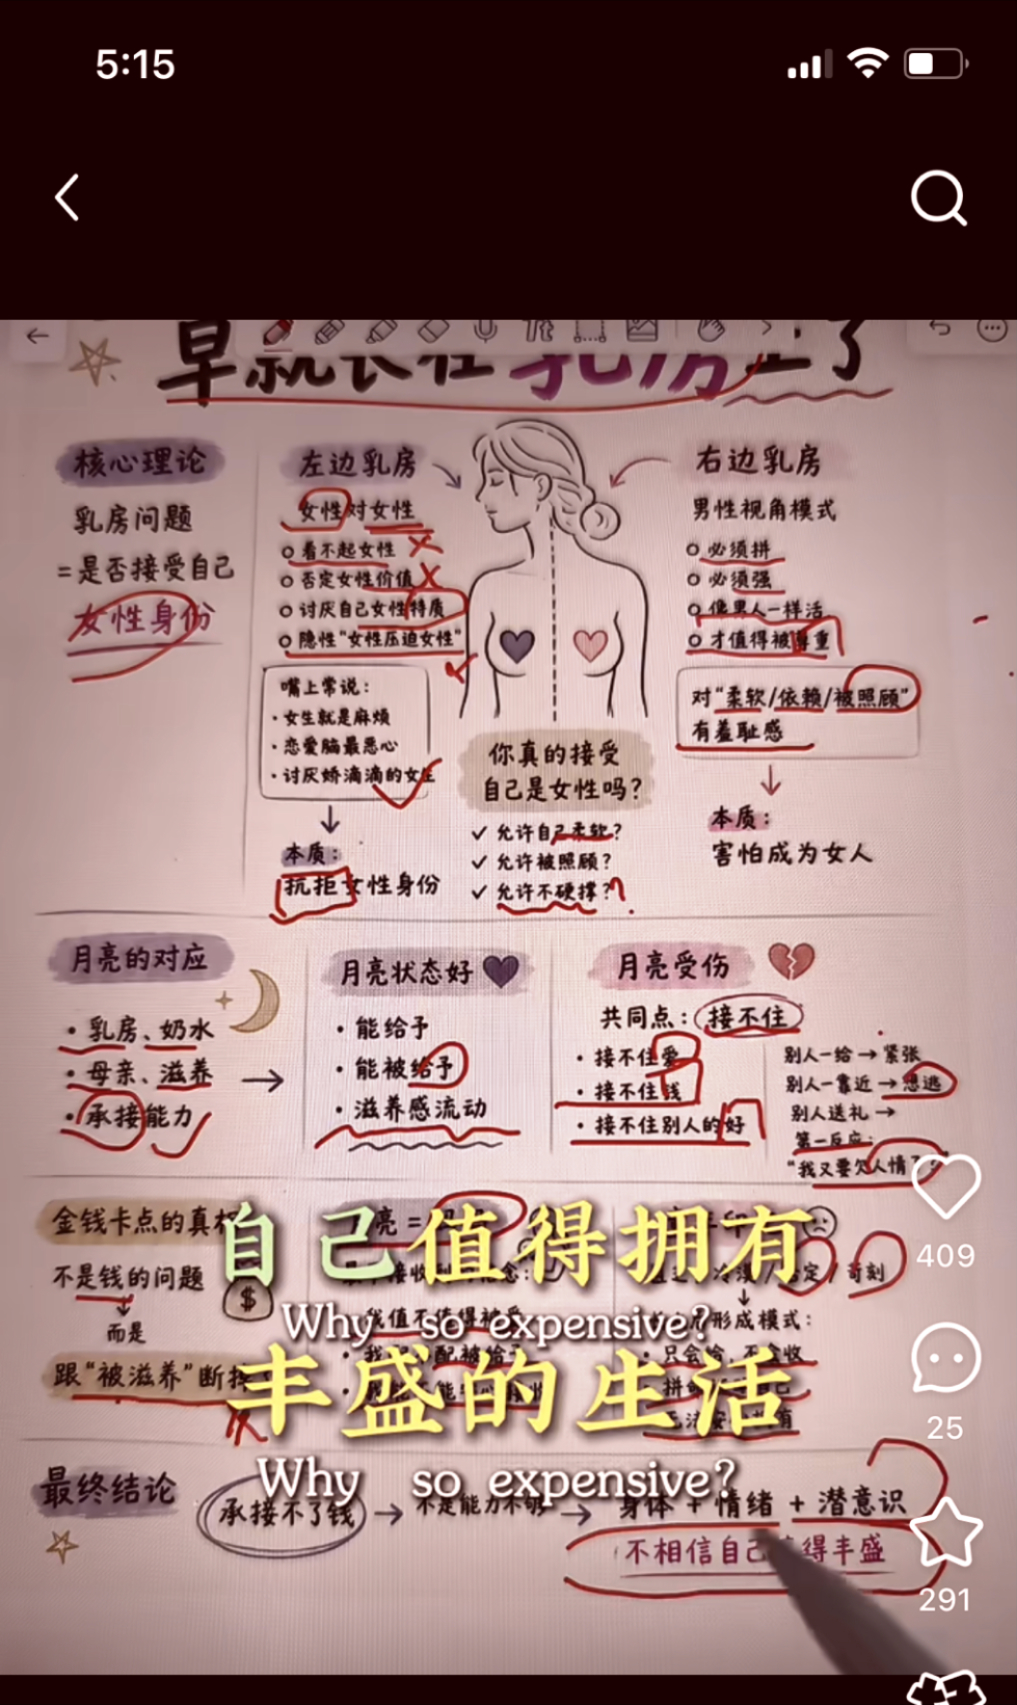 5:15
早就长在乳房上了
核心理论
乳房问题
=是否接受自己
女性身份
左边乳房
女性对女性
看不起女性
否定女性价值
讨厌自己女性特质
隐性"女性压迫女性"
嘴上常说:
·女生就是麻烦
·恋爱脑最恶心
·讨厌娇滴滴的女生
本质:
抗拒女性身份
右边乳房
男性视角模式
必须拼
必须强
像男人一样活
才值得被尊重
对"柔软/依赖/被照顾"
有羞耻感
本质:
害怕成为女人
你真的接受
自己是女性吗?
✓ 允许自己柔软?
✓ 允许被照顾?
✓ 允许不硬撑?
月亮的对应
·乳房、奶水
·母亲、滋养
·承接能力
月亮状态好
·能给予
·能被给予
·滋养感流动
月亮受伤
共同点:接不住
·接不住爱
·接不住钱
·接不住别人的好
别人一给→紧张
别人一靠近→想逃
别人送礼→
第一反应:
"我又要欠人情了?"
金钱卡点的真相
不是钱的问题
而是
跟"被滋养"断掉
$
苛刻
形成模式:
自己值得拥有
Why so expensive?
丰盛的生活
Why so expensive?
最终结论
承接不了钱→不是能力不够→身体+情绪+潜意识
不相信自己值得丰盛
409
25
291